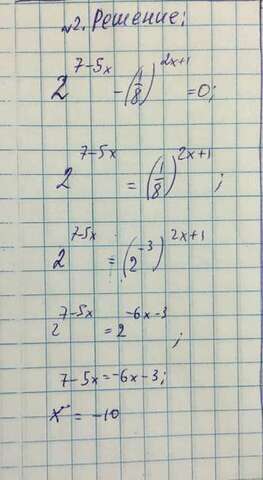 №2. Решение:
2^(7-5x) - (1/8)^(2x+1) = 0;
2^(7-5x) = (1/8)^(2x+1);
2^(7-5x) = (2^(-3))^(2x+1)
2^(7-5x) = 2^(-6x-3);
7-5x = -6x-3;
x = -10